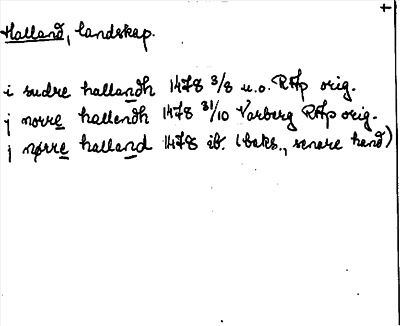 Halland, landskap.
i sudre hallandh 1478 3/8 u.o. RAp orig.
j norre hallendh 1478 31/10 Varberg RAp orig.
j nørre halland 1478 ib. (baks., senare hand)